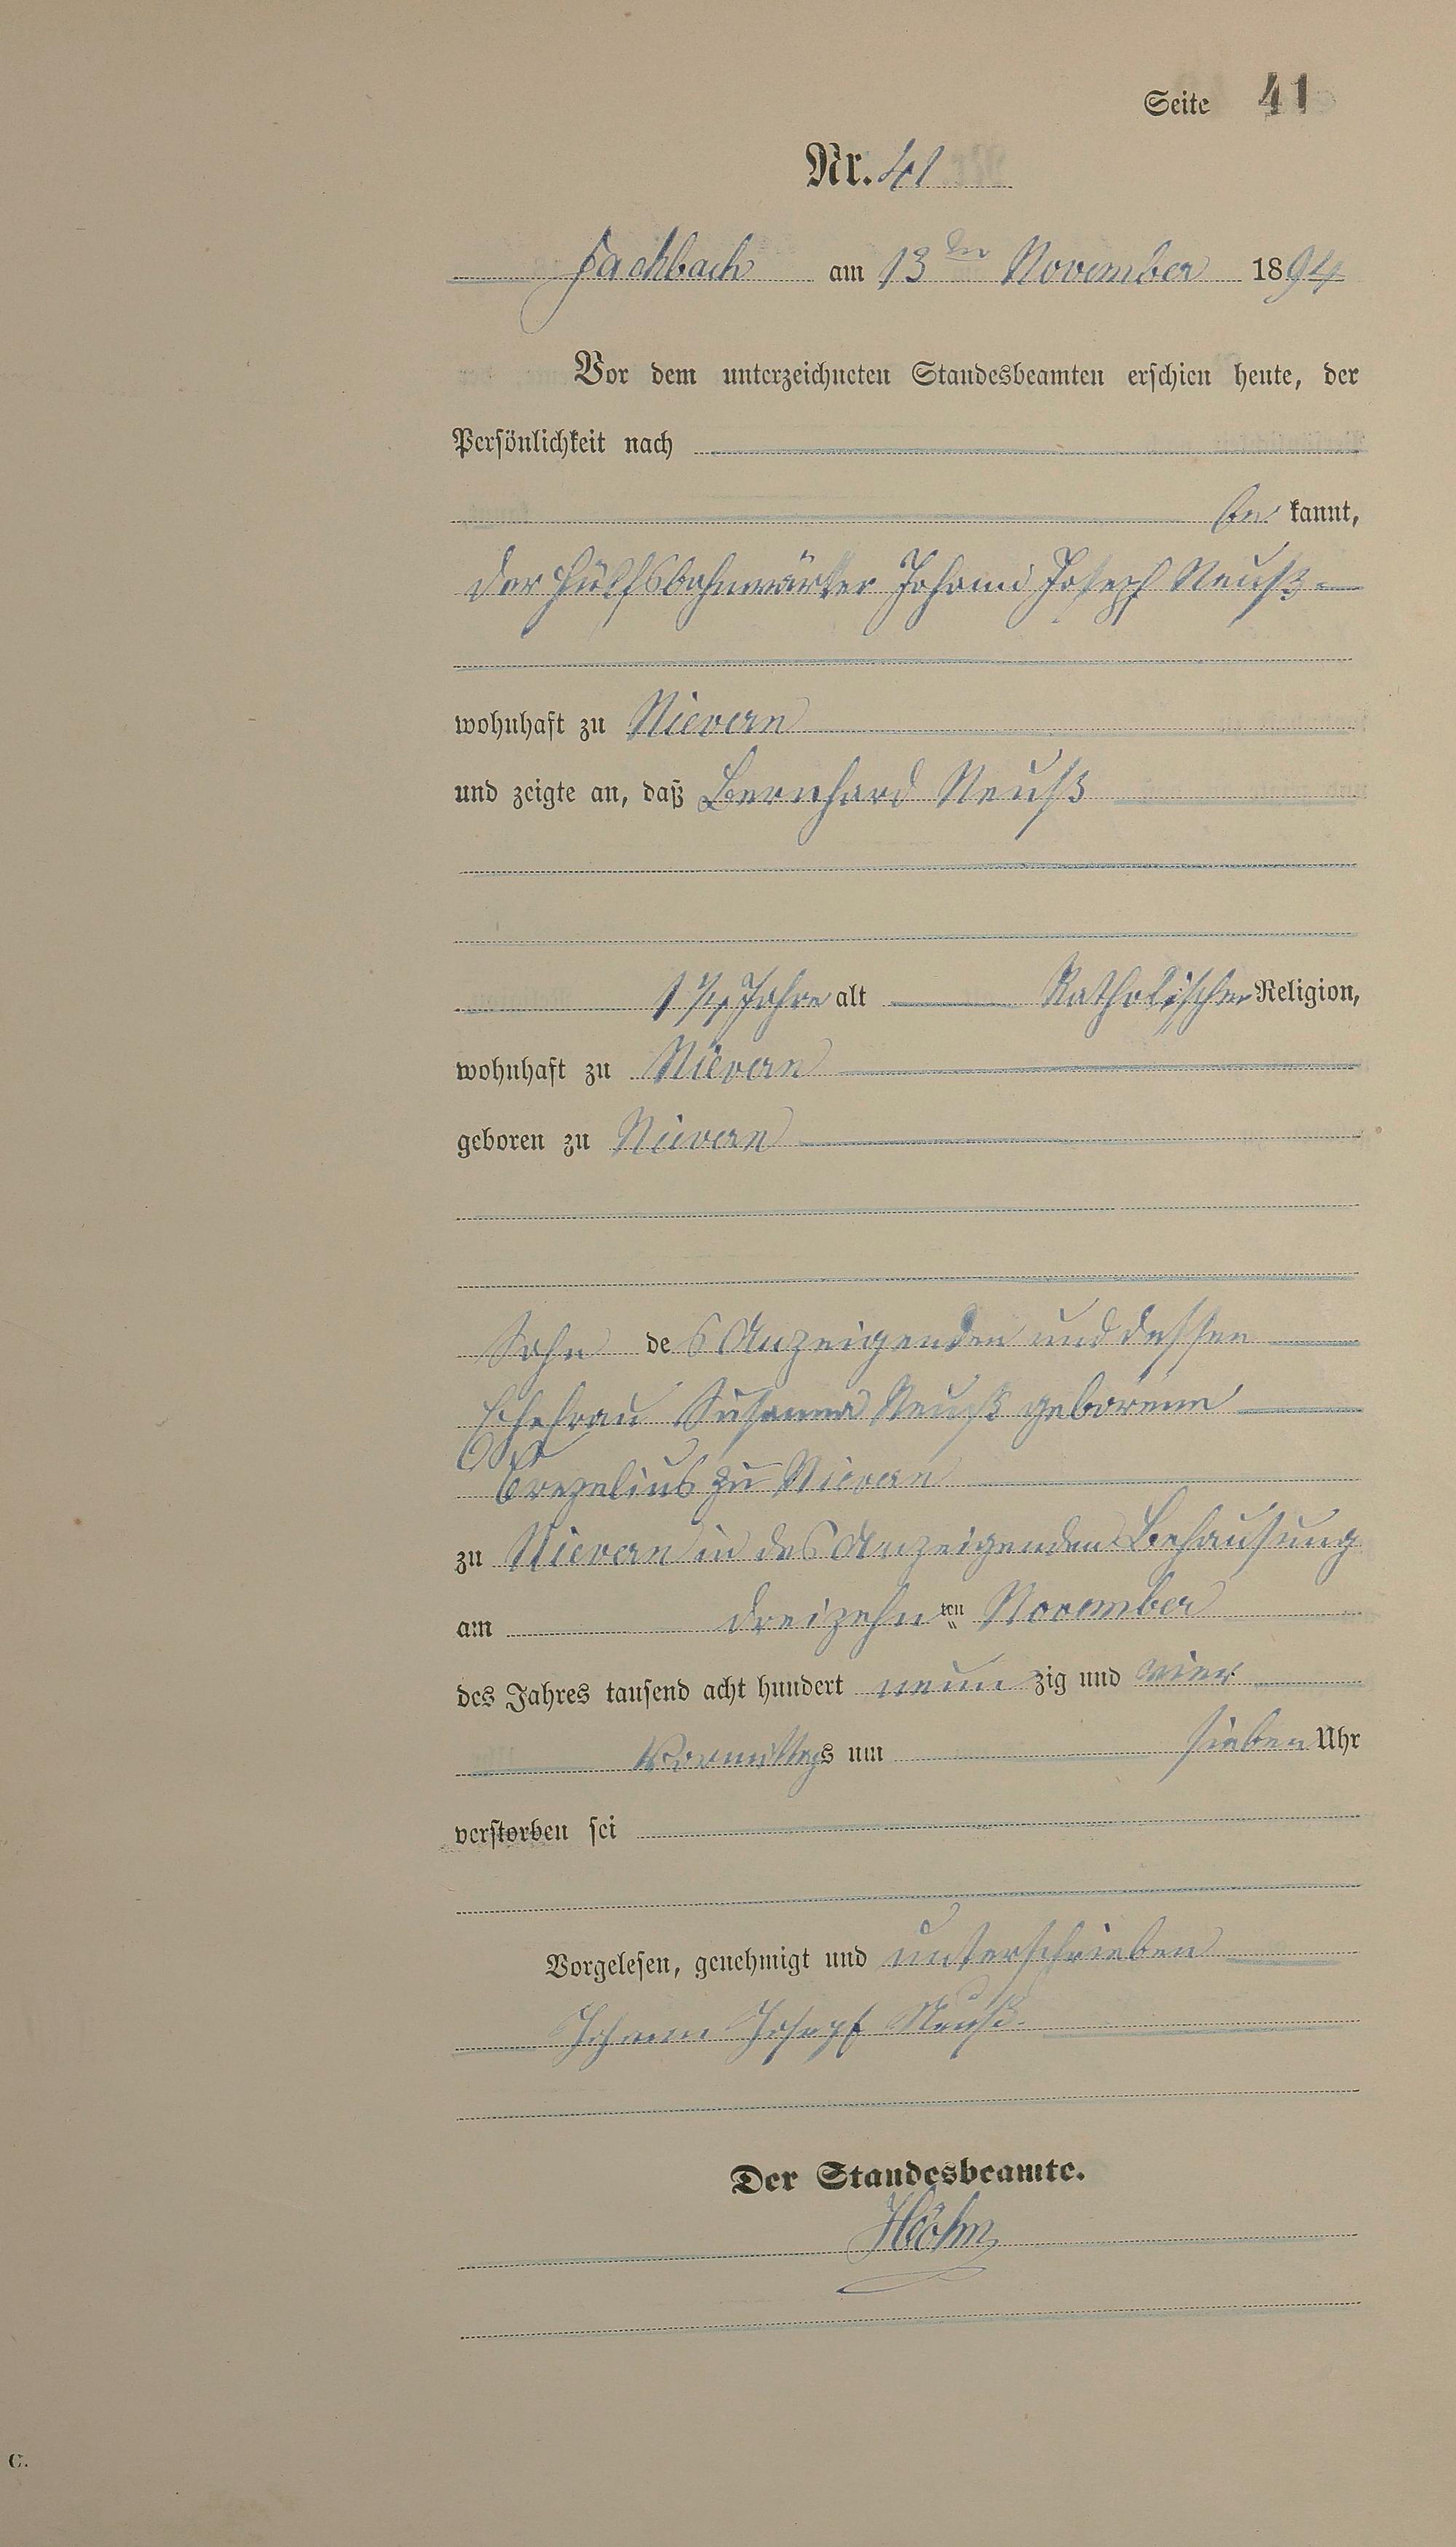 Seite 41
Nr. 41
Fachbach am 13ten November 1894
Vor dem unterzeichneten Standesbeamten erschien heute, der
Persönlichkeit nach
be kannt,
der Hülfsbahnwärter Johann Joseph Neuß
wohnhaft zu Nievern
und zeigte an, daß Bernhard Neuß
Jahre alt Katholischer Religion,
wohnhaft zu Nievern
geboren zu Nievern
Sohn des Anzeigenden und dessen
Ehefrau Susanna Neuß geborene
zu Nievern
zu Nievern in des Anzeigenden Behausung
am dreizehnten November
des Jahres tausend acht hundert neunzig und vier
Vormittags um sieben Uhr
verstorben sei
Vorgelesen, genehmigt und unterschrieben
Johann Joseph Neuß
Der Standesbeamte.
Höhn
C.